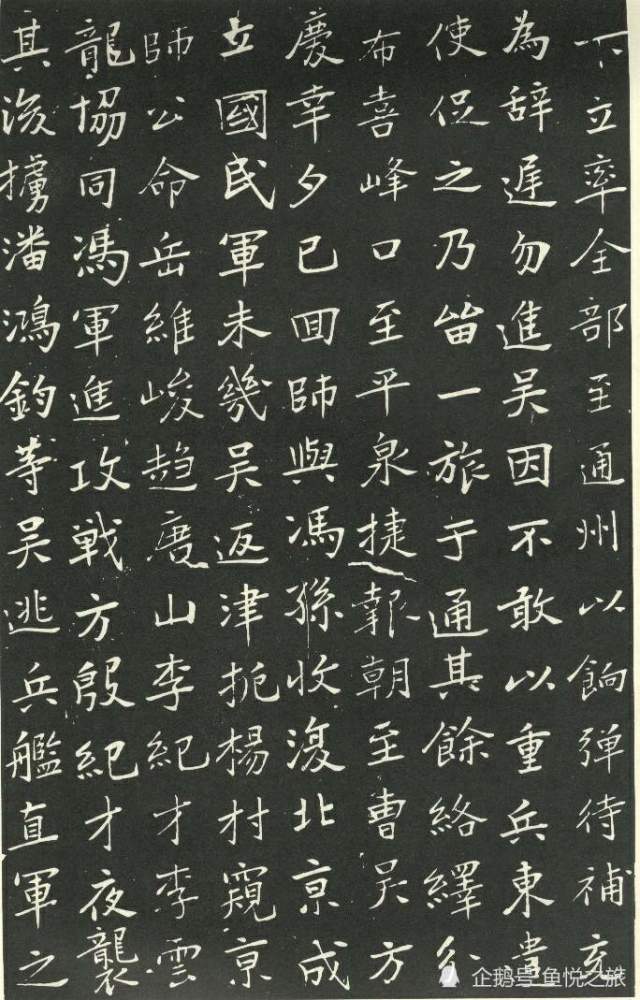 下立率全部至通州以餉彈待補充
為辞遲勿進吳因不敢以重兵東
使促之乃留一旅于通其餘絡繹分
布喜峰口至平泉捷報朝至曹吳方
慶幸夕已回師與馮孫收復北京成
立國民軍未幾吳返津扼楊村窺京
師公命岳維峻趋唐山李紀才李雲
龍協同馮軍進攻戰方殷紀才夜襲
其後擄潘鴻鈞等吳逃兵艦直軍之
企鹅号 鱼悦之旅